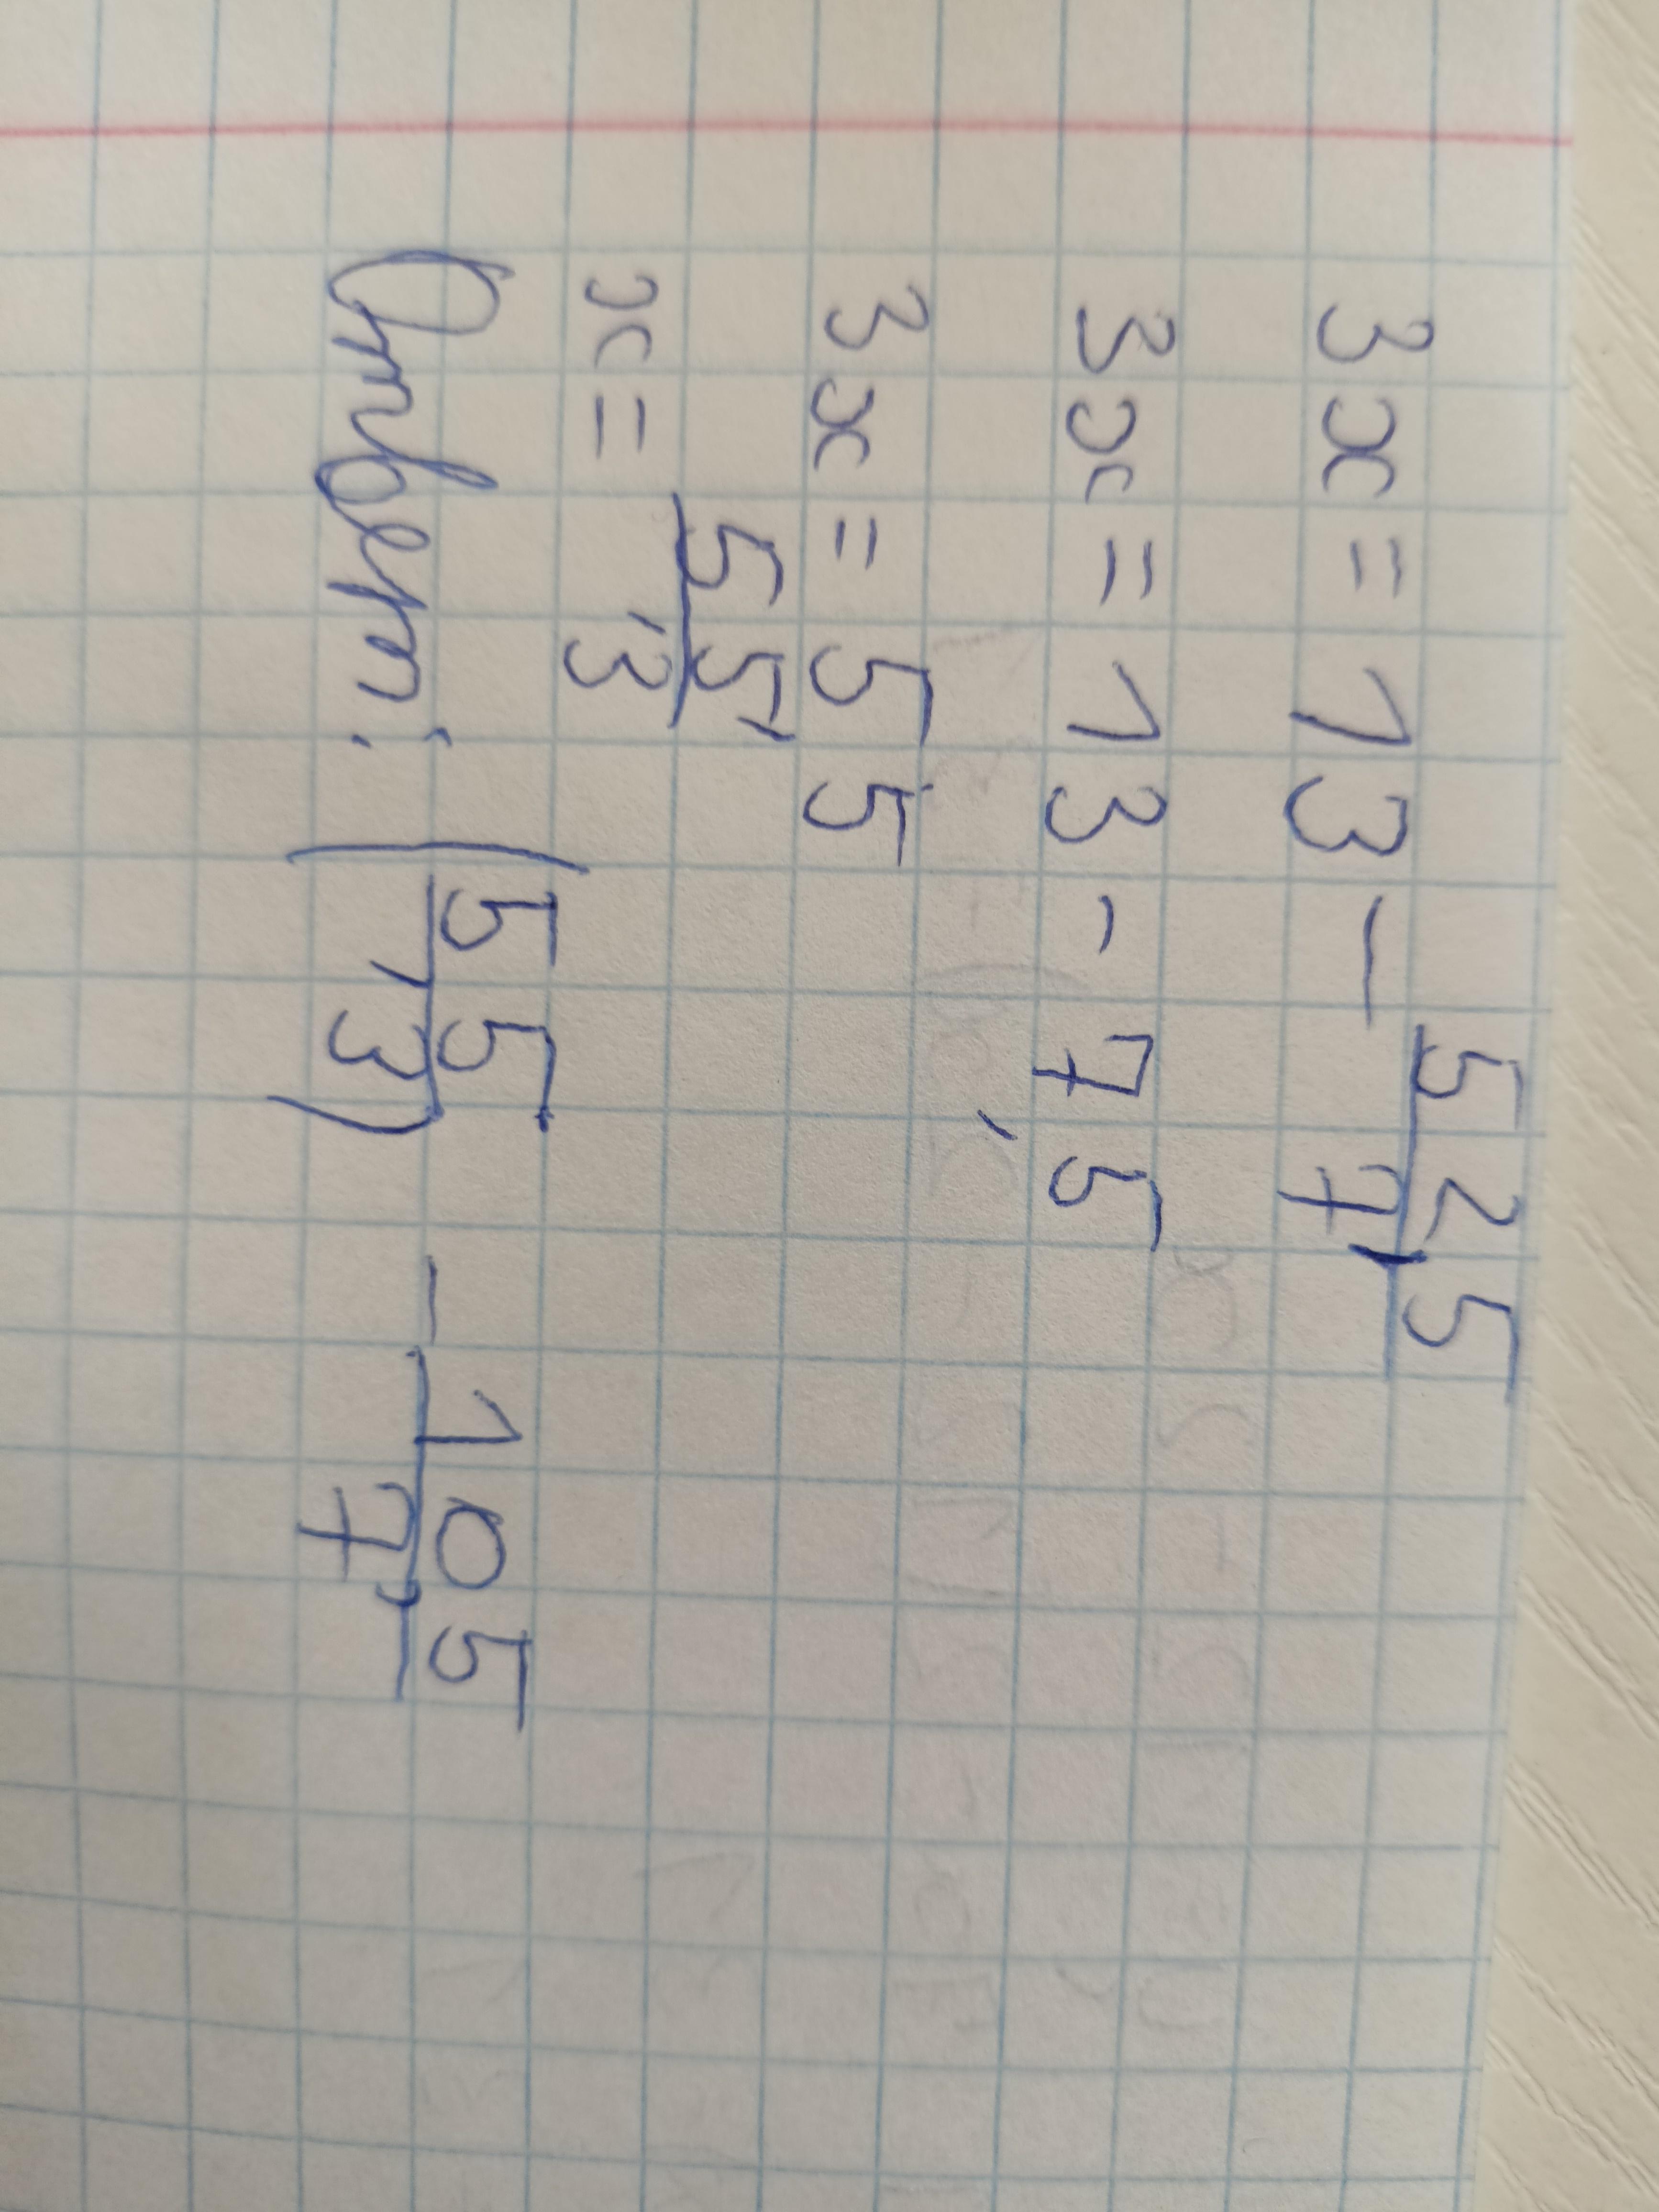 3x = 13 - 52,5/7
3x = 13 - 7,5
3x = 5 5
x = 5,5/3
Ответ: (5,5/3) - 10,5/7